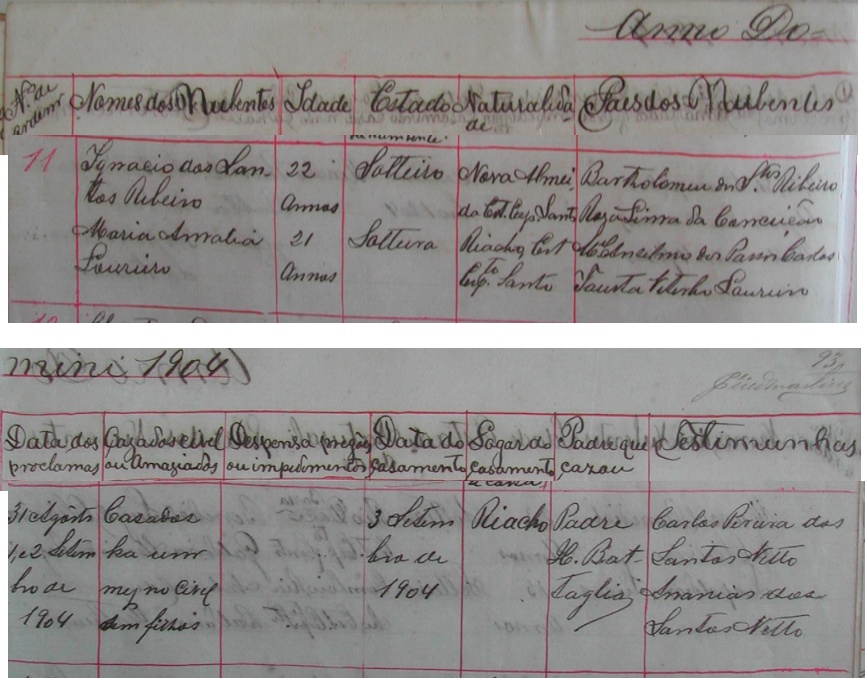 Anno Do=
Nº. de ordem
Nomes dos Nubentes
Idade
Estado
Naturalida de
Paes dos Nubentes
11
Ignacio dos San-
tos Ribeiro
Maria Amalia
Loureiro
22
Annos
21
Annos
Solteiro
Solteira
Nova Almei
da Est. Esp. Santo
Riacho, Est
Espto. Santo
Bartholomeu dos Stos Ribeiro
Roza Lima da Conceição
dos Passos
Fausta Loureiro
mini 1904
93
Data dos
proclamas
Cazados civel
ou Amaziados
Despensa pregões
ou impedimentos
Data do
casamento
Logar do
casamento
Padre que
cazou
Testimunhas
31 Agosto
1, e 2 Setem
bro de
1904
Casados
ha um
mez no Civel
sem filhos
3 Setem
bro de
1904
Riacho
Padre
H. Bat-
taglia
Carlos Pereira dos
Santos Netto
Ananias dos
Santos Netto